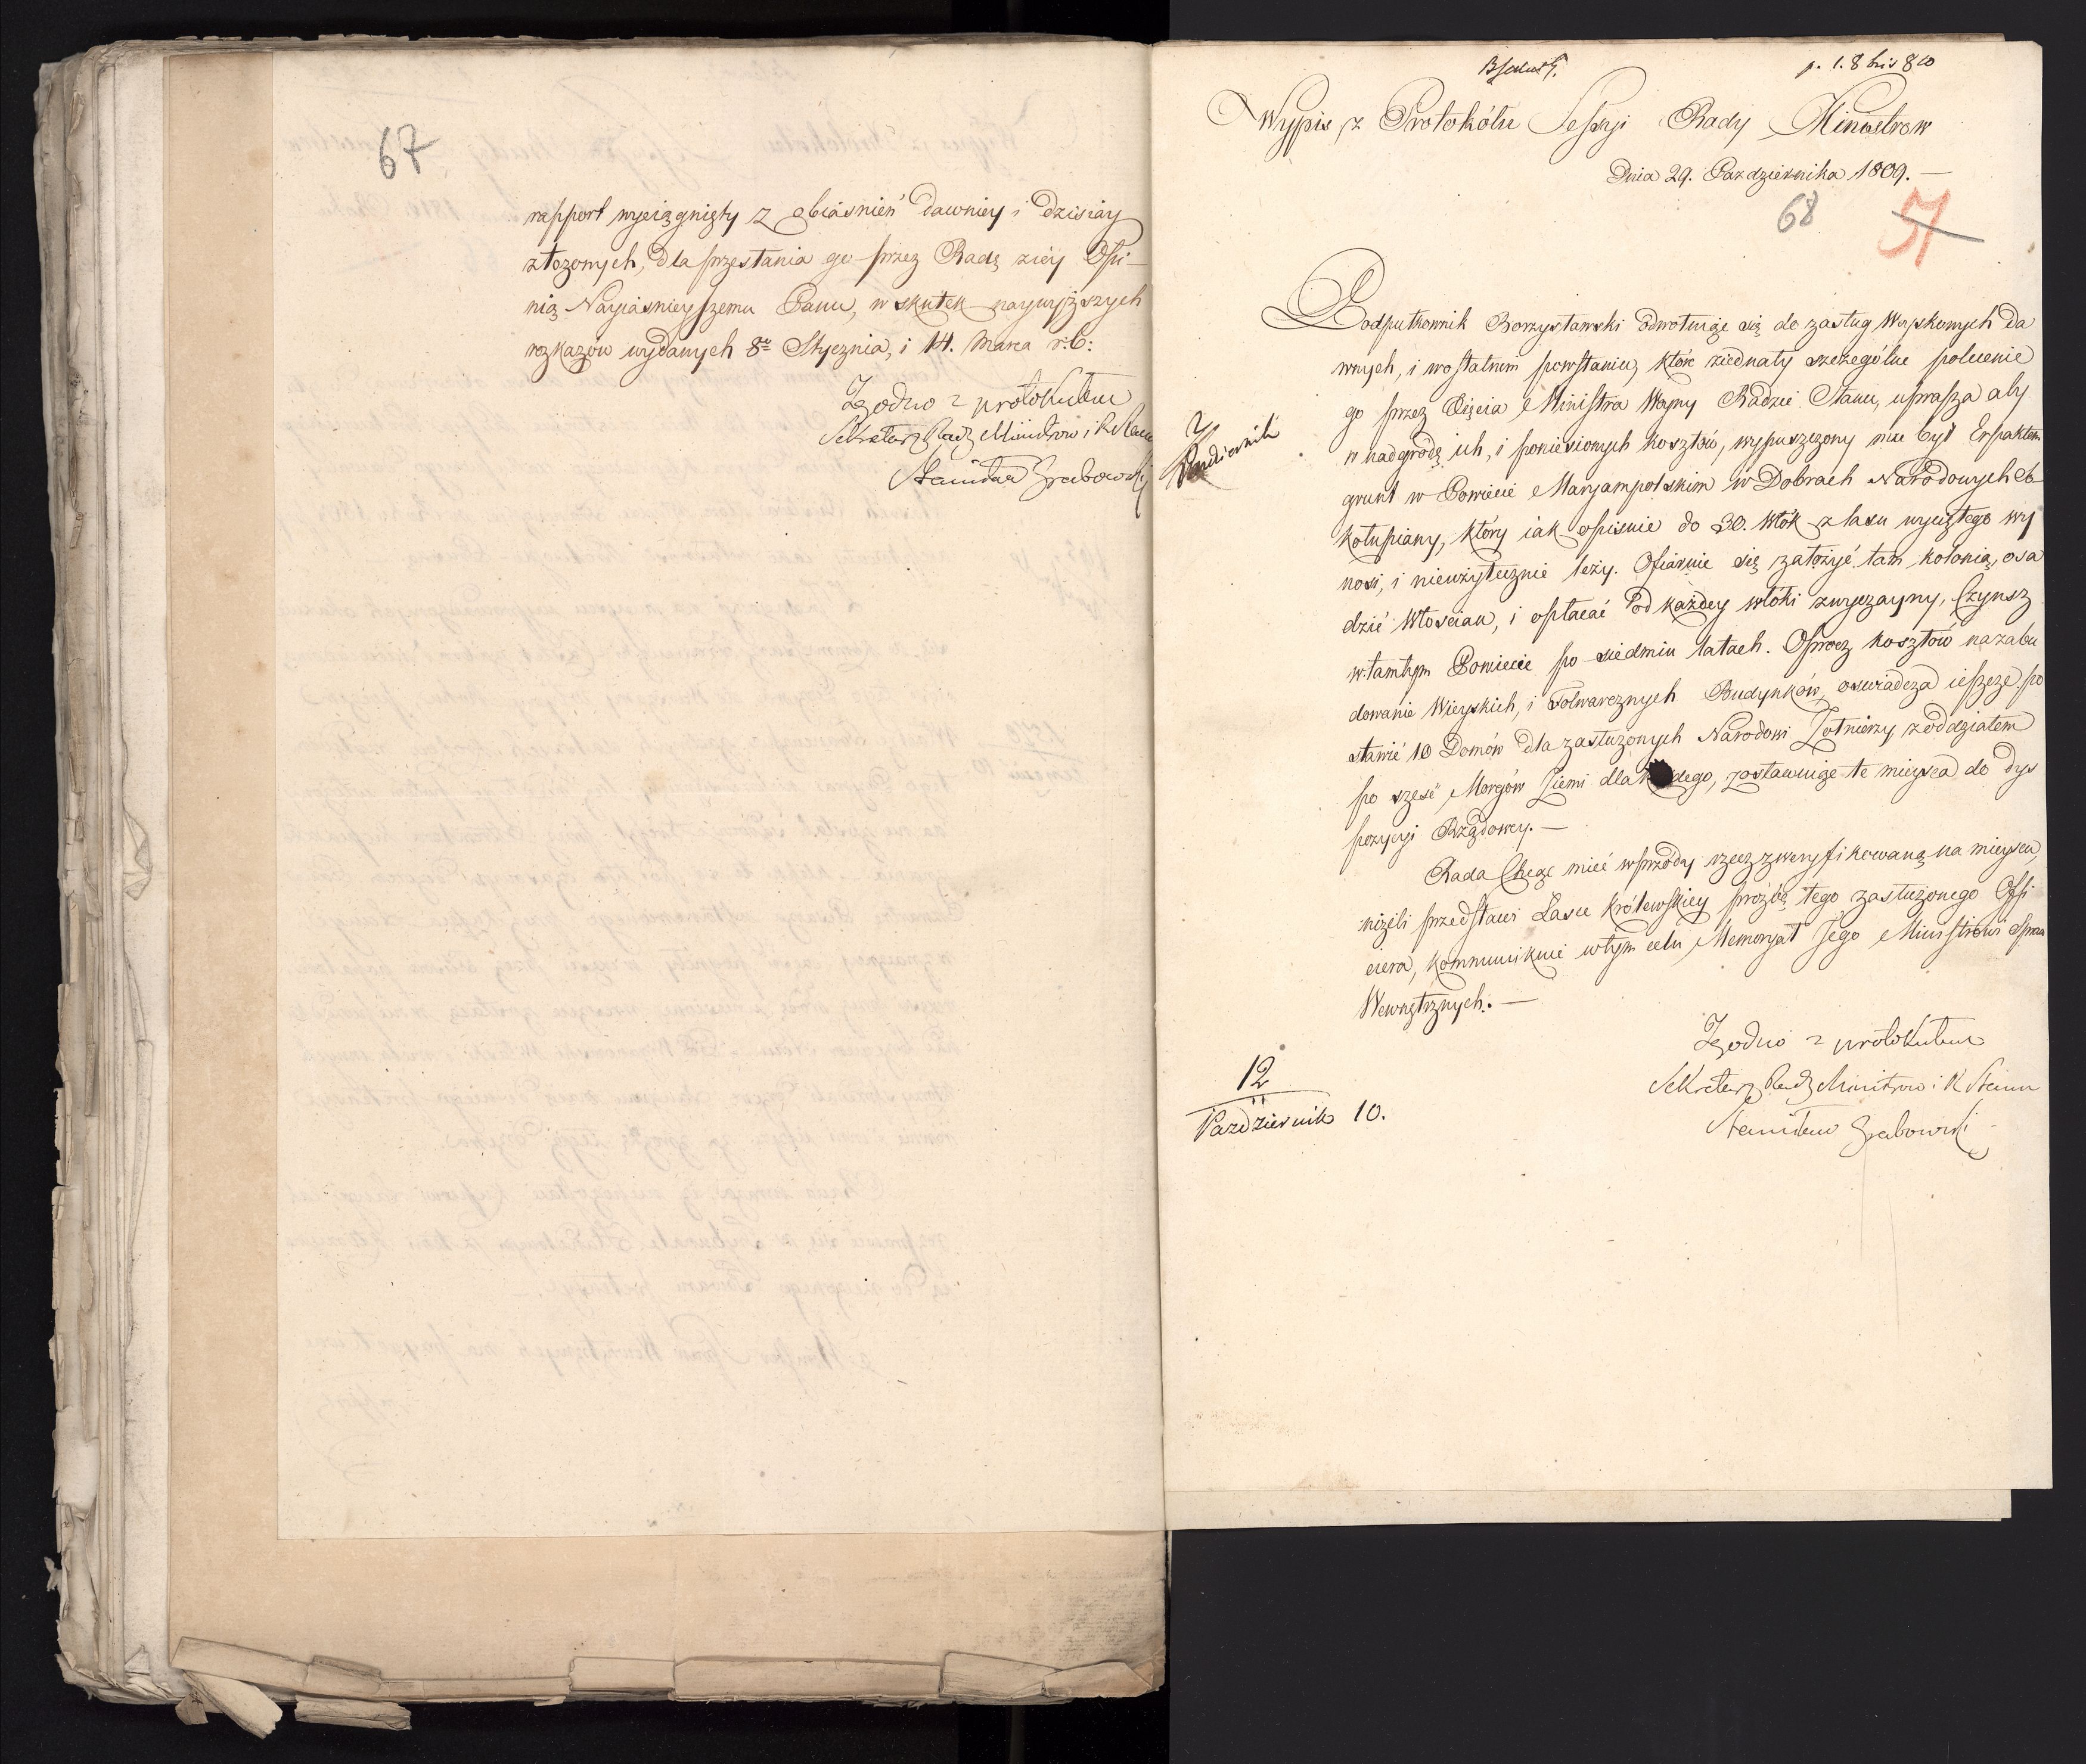 67
rapport wyciągnięty z obiaśnień dawniey i dzisiay
złożonych, dla przesłania go przez Radę z iéy Opi-
nią Nayiaśnieyszemu Panu, w skutek naywyższych
rozkazów wydanych 8º Stycznia, i 14. Marca r: b:
Zgodno z protokułem
Sekretarz Rady Ministrow i R Stanu
Stanisław Grabowski
p. 1. 8bris 810
Wypis z Protokółu Sessyi Rady Ministrow
Dnia 29. Pazdziernika 1809. —
68 51
Podpułkownik Borzysławski odwołuiąc się do zasług Woyskowych da
wnych, i wostatnim powstaniu, które ziednały szczególne polecenie
go przez Xięcia Ministra Woyny Radzie Stanu, uprasza aby
w nadgrodę ich, i poniesionych kosztów, wypuszczony mu był Erpaktem
grunt w Powiecie Maryampolskim w Dobrach Narodowych
kołupiany, który iak opisuie do 30. Włók z lasu wyciętego wy
nosi, i nieużytecznie leży. Ofiaruie się założyć tam kolonią, osa
dzić Włościan, i opłacać od każdey włóki zwyczayny Czynsz
w tamtym Powiecie po siedmiu latach. Oprocz kosztów na zabu
dowanie Wieyskich, i Folwarcznych Budynków, oswiadcza ieszcze po
stawić 10 Domów dla zasłużonych Narodowi Żołnierzy z oddziałem
po szesć Morgów Ziemi dla każdego, zostawuiąc te mieysca do dys
pozycyi Rządowey. —
Rada Chcąc mieć wprzódy rzecz zweryfikowaną na mieyscu,
niżeli przedstawi Łasce Królewskiey prożbę tego zasłużonego Offi
ciera, kommunikuie w tym celu Memoryał Jego Ministrowi Spraw
Wewnętrznych. —
Zgodno z protokułem
Sekretarz Rady Ministrow i R Stanu
Stanisław Grabowski
12
Pazdziernik 10.